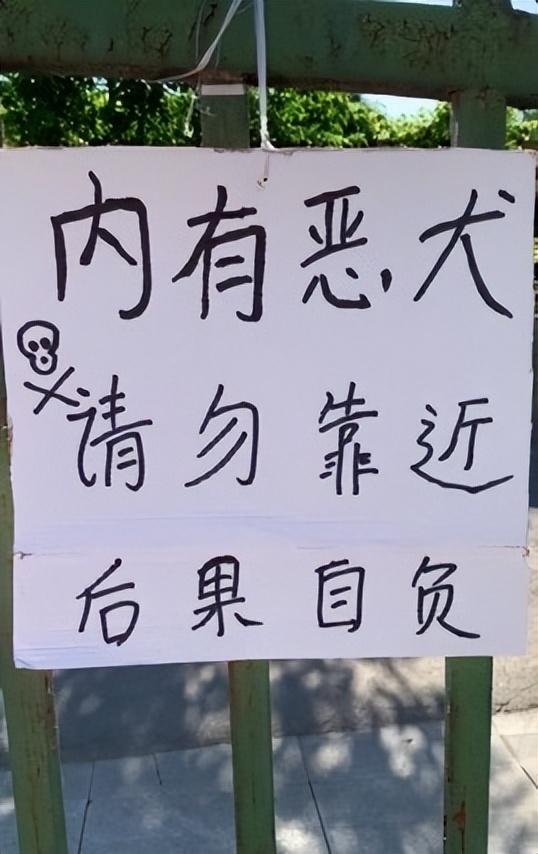 内有恶犬
请勿靠近
后果自负